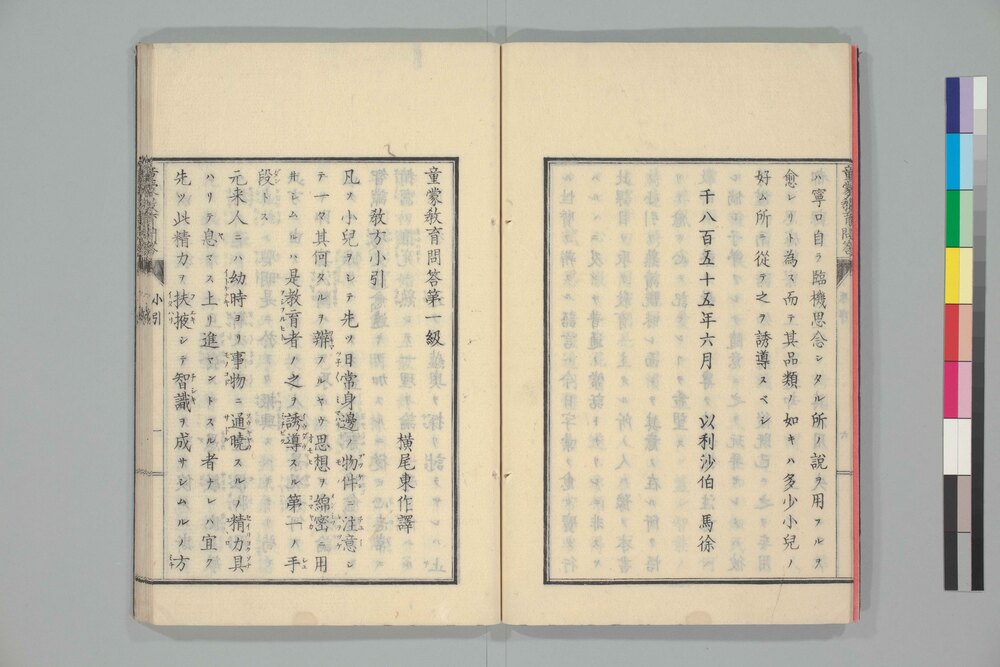 ハ寧ロ自ラ臨機思念シタル所ノ説ヲ用フルヲ
愈レリト為ス而テ其品類ノ如キハ多少小兒ノ
好ム所ニ從テ之ヲ誘導スベシ
千八百五十五年六月 以利沙伯 馬徐
童蒙敎育問答第一級
橫尾東作譯
敎方小引
凡ソ小兒ヲシテ先ツ日常身邊ノ物件ニ注意シ
テ一々其何タルヲ辨フルヤウ思想ヲ綿密ニ用
井シムルハ是教育者ノ之ヲ誘導スル第一ノ手
段トス
元来人ニハ幼時ヨリ事物ニ通曉スルノ精力具
ハリテ息マス上リ進マントスル者ナレハ宜ク
先ツ此精力ヲ扶掖シテ智識ヲ成サシムルノ方
小引
一